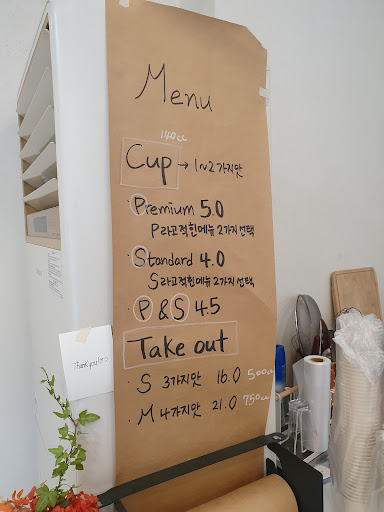 Menu
140cc
Cup → 1~2가지맛
· Premium 5.0
P라고적힌메뉴 2가지 선택
· Standard 4.0
S라고적힌메뉴 2가지 선택
· P & S 4.5
Take out
· S 3가지맛 16.0 500cc
· M 4가지맛 21.0 750cc
Thank you!